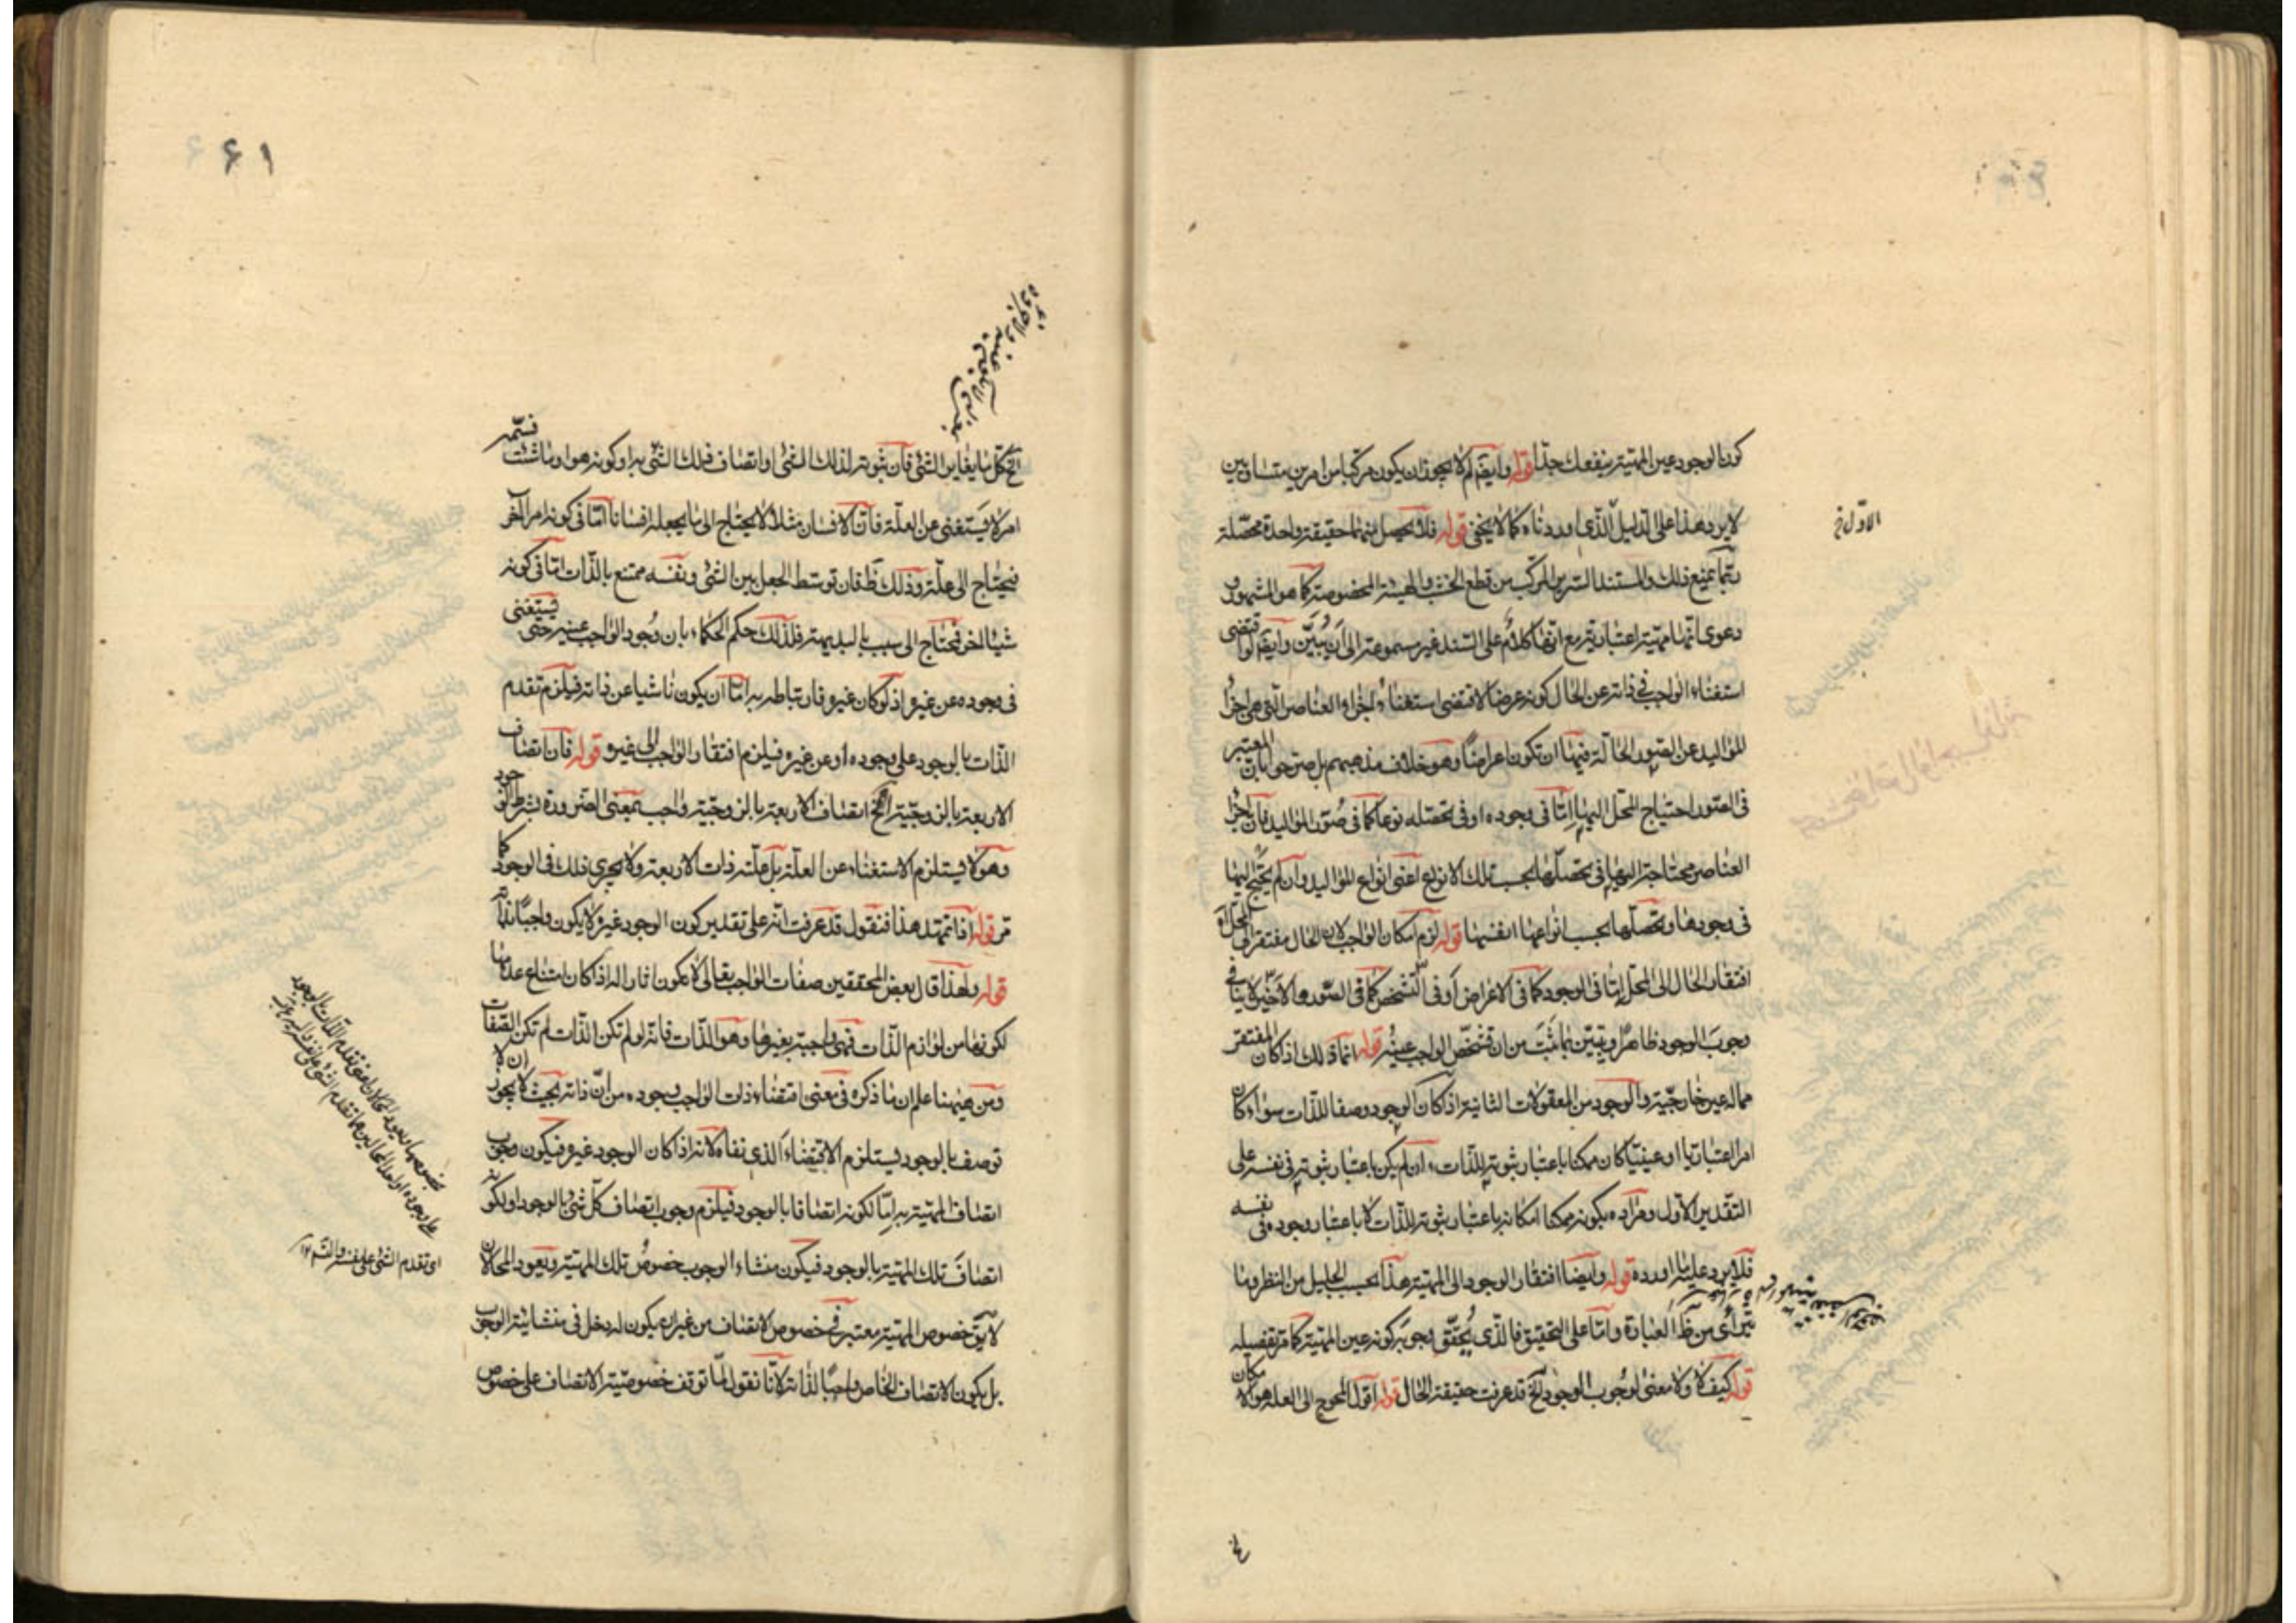 كون الوجود عين المهيّة ينفعك جدّا قوله وايضم لم لا يجوز ان يكون مركبا من امرين متساويين
لا يرد هذا على الدليل الّذى اوردناه كما لا يخفى قوله فلا يحصل منهما حقيقة واحدة محصّلة
ربّما يمنع ذلك والمستند السرير المركّب من قطع الخشب والهيئة المخصوصة كما هو المشهور و
دعوى انّها مهيّة اعتبارية مع انّها كلام على السّند غير مسموعة الى ان يُبيّن وايضم لو اقتضى
استغناء الواجب فى ذاته عن الحال كونه عرضا لاقتضى استغناء اجزاء العناصر الّتى هى اجزاء
المواليد عن الصّور الحالّة فيها ان تكون اعراضًا وهو خلاف مذهبهم بل صرّحوا بان المعتبر
فى الصّور احتياج المحلّ اليها امّا فى وجوده او فى تحصّله نوعا كما فى صُوَر المواليد فانّ اجزاء
العناصر محتاجة اليها فى تحصّلها بحسب تلك الانواع اعنى انواع المواليد وان لم يحتج اليها
فى وجودها وتحصّلها بحسب انواعها انفسها قوله لزم امكان الواجب لان الحال مفتقر الى المحلّ اه
افتقار الحال الى المحلّ امّا فى الوجود كما فى الاعراض او فى التّشخّص كما فى الصّور والاخير لا ينافى
وجوبَ الوجود ظاهرًا ويتبيّن بما ثَبَتَ من ان تشخّص الواجب عينُه قوله انما ذلك اذا كان المفتقر
مما له عين خارجيّة والوجود من المعقولات الثانية اذا كان الوجود وصفا للذّات سواء كان
امرا اعتباريّا او عينيّا كان ممكنا باعتبار ثبوته للذّات وان لم يكن باعتبار ثبوته فى نفسه على
التّقدير الاوّل ومراده بكونه ممكنا امكانه باعتبار ثبوته للذّات لا باعتبار وجوده فى نفسه
فلا يرد عليه ما اورده قوله وايضا افتقار الوجود الى المهيّة هذا بحسب الجليل من النظر وما
يتراأى من ظ العبارة وامّا على التحقيق فالّذى يُحقّق وجوبَه كونه عين المهيّة كما مرّ تفصيله
قوله كيف لا ولا معنى لوجوب الوجود الخ قد عرفت حقيقة الحال قوله اقول المحوج الى العلة هو الامكان
الاوّل خ
١٦٦
الخ كل ما يغاير الشّئ فانّ ثبوته لذلك الشّئ او اتصاف ذلك الشّئ به او كونه هو او ما شئت فسمّه
امر لا يستغنى عن العلّة فانّ الانسان مثلا لا يحتاج الى ما يجعله انسانا امّا فى كونه امرا آخر
فيحتاج الى علّة وذلك ظ فان توسّط الجعل بين الشّئ ونفسه ممتنع بالذّات امّا فى كونه
شيئا اخر فيحتاج الى سبب بالبديهة فلذلك حكم الحكماء بان وُجود الواجب عينه حتى يستغنى
فى وجوده عن غيره اذ لو كان غيره فارتباطه به امّا ان يكون ناشيا عن ذاته فيلزم تقدم
الذّات بالوجود على وجوده او عن غيره فيلزم افتقار الواجب الى غيره قوله فان اتصاف
الاربعة بالزوجيّة الخ اتصاف الاربعة بالزوجيّة واجب بمعنى الضرورة بشرط الوجود
وهو لا يستلزم الاستغناء عن العلّة بل علّته ذات الاربعة ولا يجرى ذلك فى الوجود كما
مرّ قوله اذا تمهّد هذا فنقول قد عرفت انّه على تقدير كون الوجود غيره لا يكون واجبًا بذاته
قوله ولهذا قال بعض المحققين صفات الواجب تعالى لا تكون اثارا له اذا كان امتناع عدمها
لكونها من لوازم الذّات فهى واجبة بغيرها وهو الذّات فانه لو لم تكن الذّات لم تكن الصّفات
ومن هيهنا علم ان ما ذكره فى معنى اقتضاء ذات الواجب وجوده من انّ ذاته بحيث لا يجوز ان لا
توصف بالوجود يستلزم الاقتضاء الّذى نفاه لانه اذا كان الوجود غيره فيكون وجوب
اتصاف المهيّة به امّا لكونه اتصافا بالوجود فيلزم وجوب اتصاف كلّ شئ بالوجود او لكونه
اتصافَ تلك المهيّة بالوجود فيكون منشاء الوجوب خصوصُ تلك المهيّة ويعود المحالان
لا يقَ خصوص المهيّة معتبر فى خصوص الاتصاف من غير ان يكون له دخل فى منشائية الوجوب
بل يكون الاتصاف الخاص واجبًا لذاته لانّا نقول لمّا توقف خصوصيّة الاتصاف على خصوص
اى تقدم الشّئ على نفسه والتسم ١٢